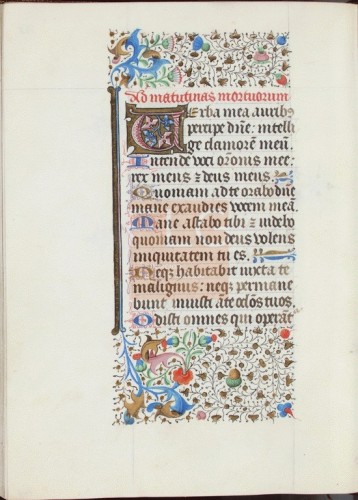 Ad matutinas mortuorum
Verba mea auribꝰ
percipe dn̄e: intelli
ge clamorem meū.
Intende voci or̄onis mee:
rex meus ⁊ deus meus.
Quoniam ad te orabo dn̄e
mane exaudies vocem meā.
Mane astabo tibi ⁊ videbo
quoniam non deus volens
iniquitatem tu es.
Neqꝫ habitabit iuxta te
malignus: neqꝫ permane
bunt iniusti ān̄te oc̄los tuos.
Odisti omnes qui operāt